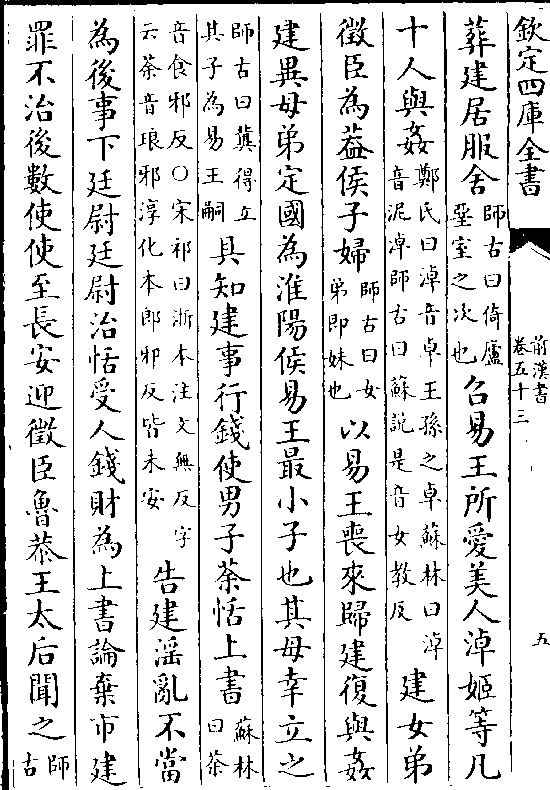 欽定四庫全書
前漢書
卷五十三
五
葬建居服舍師古曰倚廬
堊室之次也召易王所愛美人淖姬等凡
十人與姦鄭氏曰淖音卓王孫之卓蘇林曰淖
音泥淖師古曰蘇說是音女教反建女弟
徵臣為葢侯子婦師古曰女
弟即妹也以易王喪來歸建復與姦
建異母弟定國為淮陽侯易王最小子也其母幸立之
師古曰兾得立
其子為易王嗣具知建事行錢使男子荼恬上書蘇林
曰荼
音食邪反○宋祁曰浙本注文無反字
云荼音琅邪淳化本郎邪反皆未安告建淫亂不當
為後事下廷尉廷尉治恬受人錢財為上書論棄市建
罪不治後數使使至長安迎徵臣魯恭王太后聞之師
古